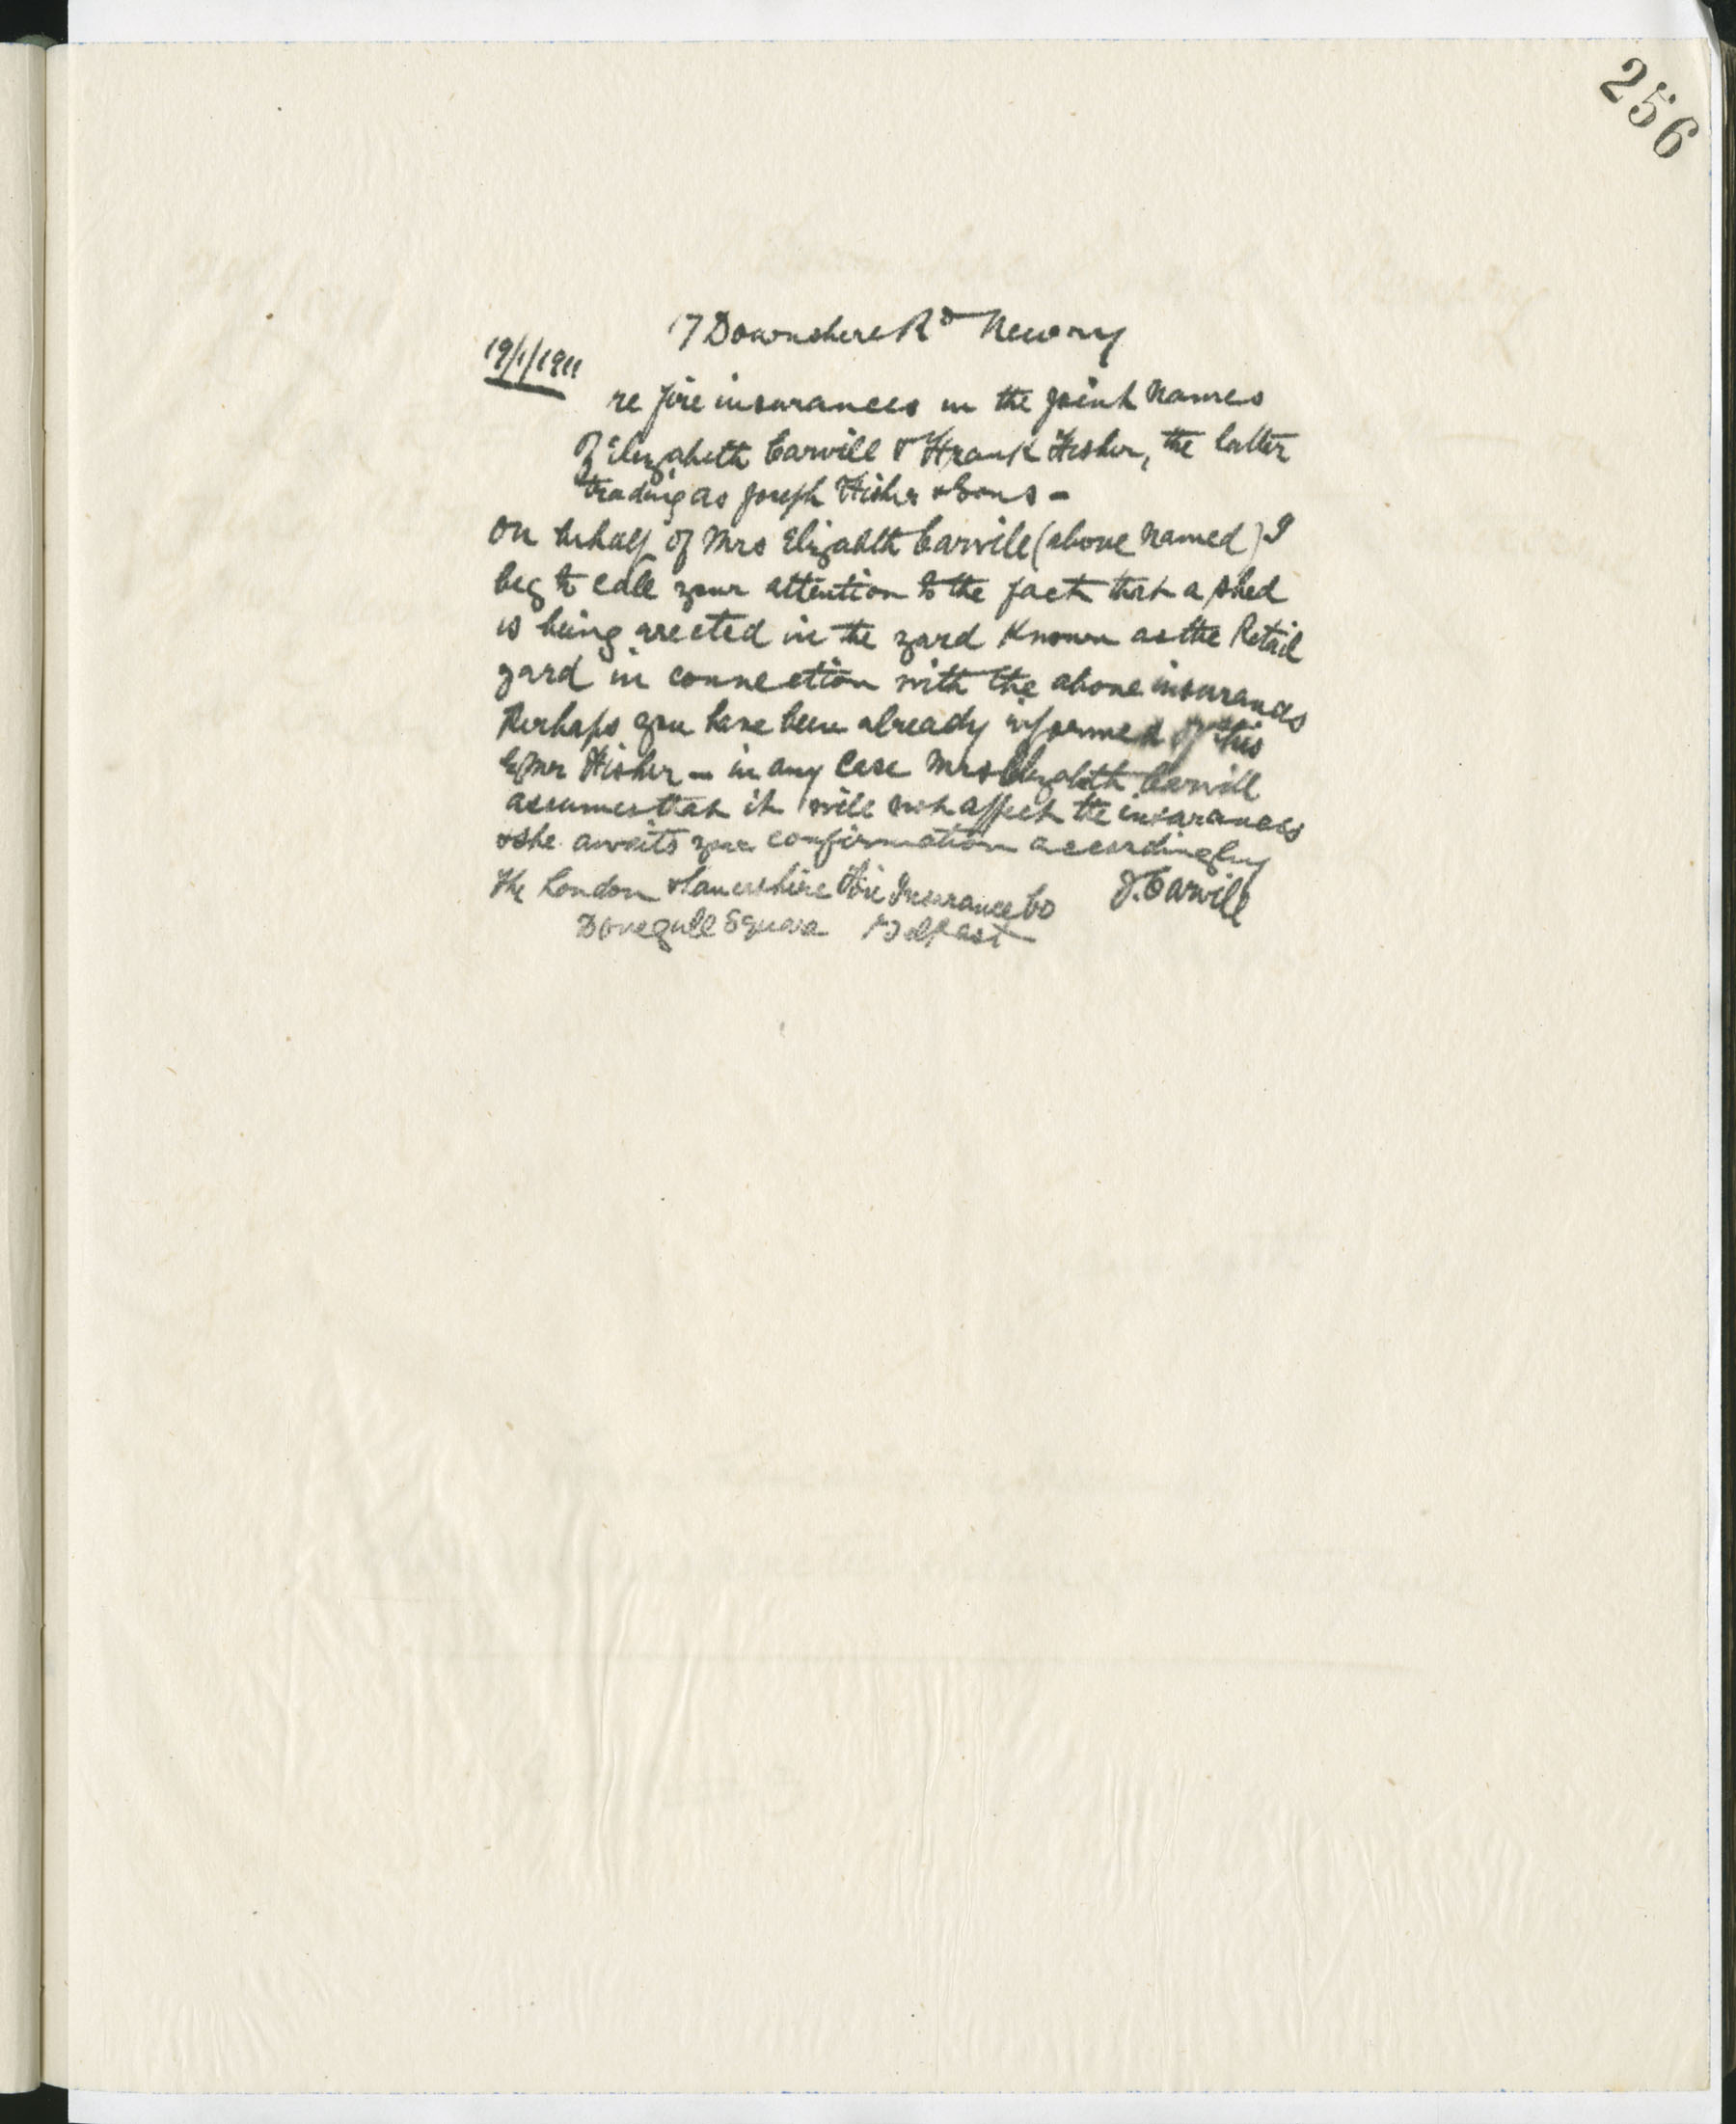 256
17 Downshire Rd Newry
19/1/1911
re fire insurances in the joint names
of Elizabeth Carvill & Frank Fisher, the latter
trading as Joseph Fisher & Sons -
On behalf of Mrs Elizabeth Carvill (above named) I
beg to call your attention to the fact that a shed
is being erected in the yard known as the Retail
yard in connection with the above insurances
Perhaps you have been already informed of this
by Mr Fisher - in any case Mrs Elizabeth Carvill
assumes that it will not affect the insurances
& she awaits your confirmation accordingly
The London & Lancashire Fire Insurance Co J. Carvill
Donegall Square Belfast